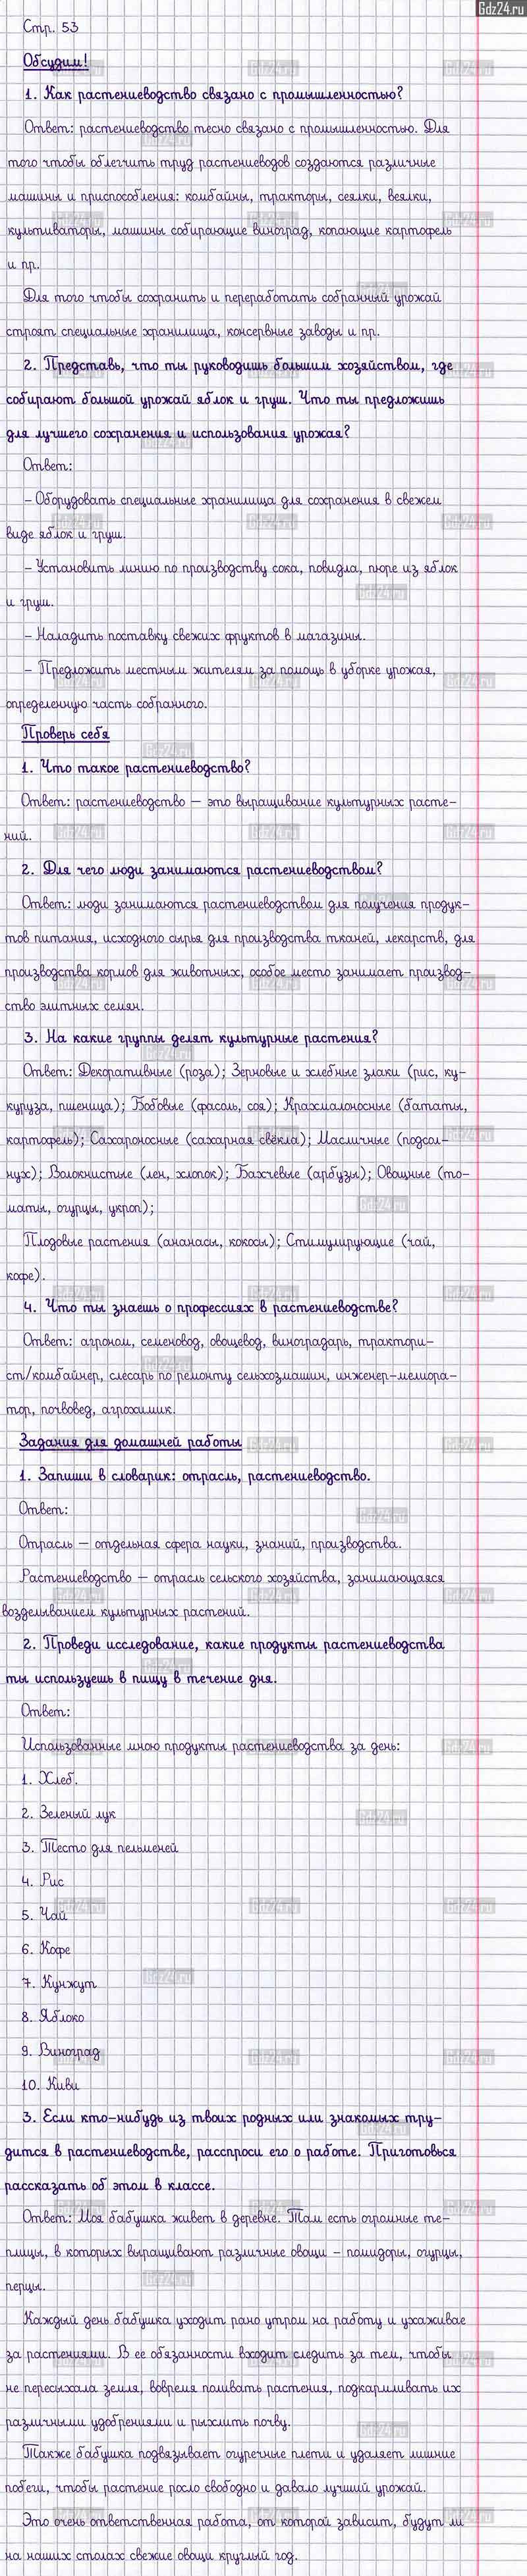 Gdz24.ru
Стр. 53
Обсудим!
1. Как растениеводство связано с промышленностью?
Ответ: растениеводство тесно связано с промышленностью. Для
того чтобы облегчить труд растениеводов создаются различные
машины и приспособления: комбайны, тракторы, сеялки, веялки,
культиваторы, машины собирающие виноград, копающие картофель
и пр.
Для того чтобы сохранить и переработать собранный урожай
строят специальные хранилища, консервные заводы и пр.
2. Представь, что ты руководишь большим хозяйством, где
собирают большой урожай яблок и груш. Что ты предложишь
для лучшего сохранения и использования урожая?
Ответ:
– Оборудовать специальные хранилища для сохранения в свежем
виде яблок и груш.
– Установить линию по производству сока, повидла, пюре из яблок
и груш.
– Наладить поставку свежих фруктов в магазины.
– Предложить местным жителям за помощь в уборке урожая,
определенную часть собранного.
Проверь себя
1. Что такое растениеводство?
Ответ: растениеводство – это выращивание культурных расте-
ний.
2. Для чего люди занимаются растениеводством?
Ответ: люди занимаются растениеводством для получения продук-
тов питания, исходного сырья для производства тканей, лекарств, для
производства кормов для животных, особое место занимает производ-
ство элитных семян.
3. На какие группы делят культурные растения?
Ответ: Декоративные (роза); Зерновые и хлебные злаки (рис, ку-
куруза, пшеница); Бобовые (фасоль, соя); Крахмалоносные (бататы,
картофель); Сахароносные (сахарная свёкла); Масличные (подсол-
нух); Волокнистые (лен, хлопок); Бахчевые (арбузы); Овощные (то-
маты, огурцы, укроп);
Плодовые растения (ананасы, кокосы); Стимулирующие (чай,
кофе).
4. Что ты знаешь о профессиях в растениеводстве?
Ответ: агроном, семеновод, овощевод, виноградарь, трактори-
ст/комбайнер, слесарь по ремонту сельхозмашин, инженер-мелиора-
тор, почвовед, агрохимик.
Задания для домашней работы
1. Запиши в словарик: отрасль, растениеводство.
Ответ:
Отрасль – отдельная сфера науки, знаний, производства.
Растениеводство – отрасль сельского хозяйства, занимающаяся
возделыванием культурных растений.
2. Проведи исследование, какие продукты растениеводства
ты используешь в пищу в течение дня.
Ответ:
Использованные мною продукты растениеводства за день:
1. Хлеб.
2. Зеленый лук
3. Тесто для пельменей
4. Рис
5. Чай
6. Кофе
7. Кунжут
8. Яблоко
9. Виноград
10. Киви
3. Если кто-нибудь из твоих родных или знакомых тру-
дится в растениеводстве, расспроси его о работе. Приготовься
рассказать об этом в классе.
Ответ: Моя бабушка живет в деревне. Там есть огромные те-
плицы, в которых выращивают различные овощи – помидоры, огурцы,
перцы.
Каждый день бабушка уходит рано утром на работу и ухаживае
за растениями. В ее обязанности входит следить за тем, чтобы
не пересыхала земля, вовремя поливать растения, подкармливать их
различными удобрениями и рыхлить почву.
Также бабушка подвязывает огуречные плети и удаляет лишние
побеги, чтобы растение росло свободно и давало лучший урожай.
Это очень ответственная работа, от которой зависит, будут ли
на наших столах свежие овощи круглый год.